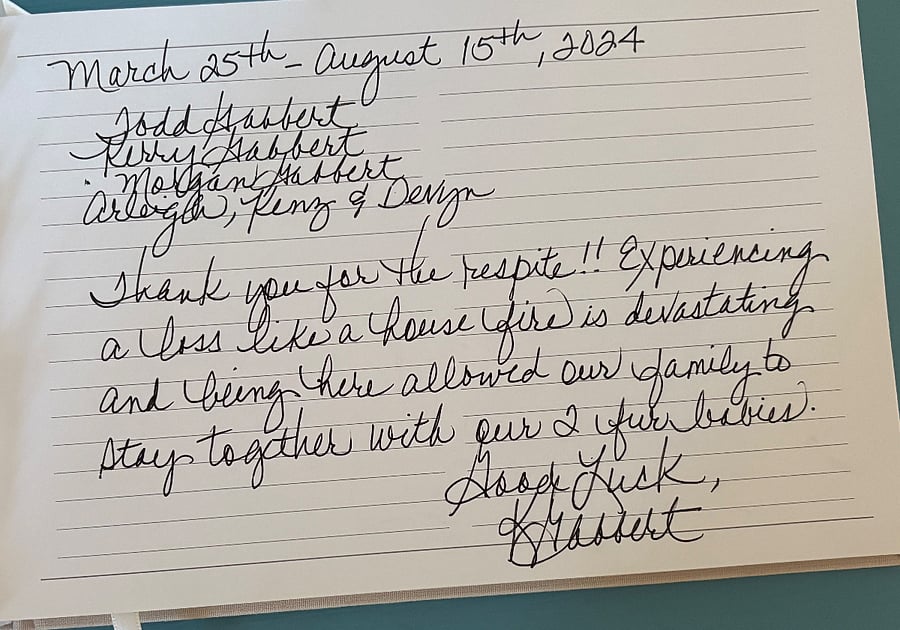 March 25th - August 15th, 2024
Todd Habbert
Kerry Habbert
Morgan Habbert
Arleigh, Kenz & Devyn
Thank you for the respite!! Experiencing
a loss like a house fire is devastating
and being here allowed our family to
stay together with our 2 fur babies.
Good Luck,
K Habbert